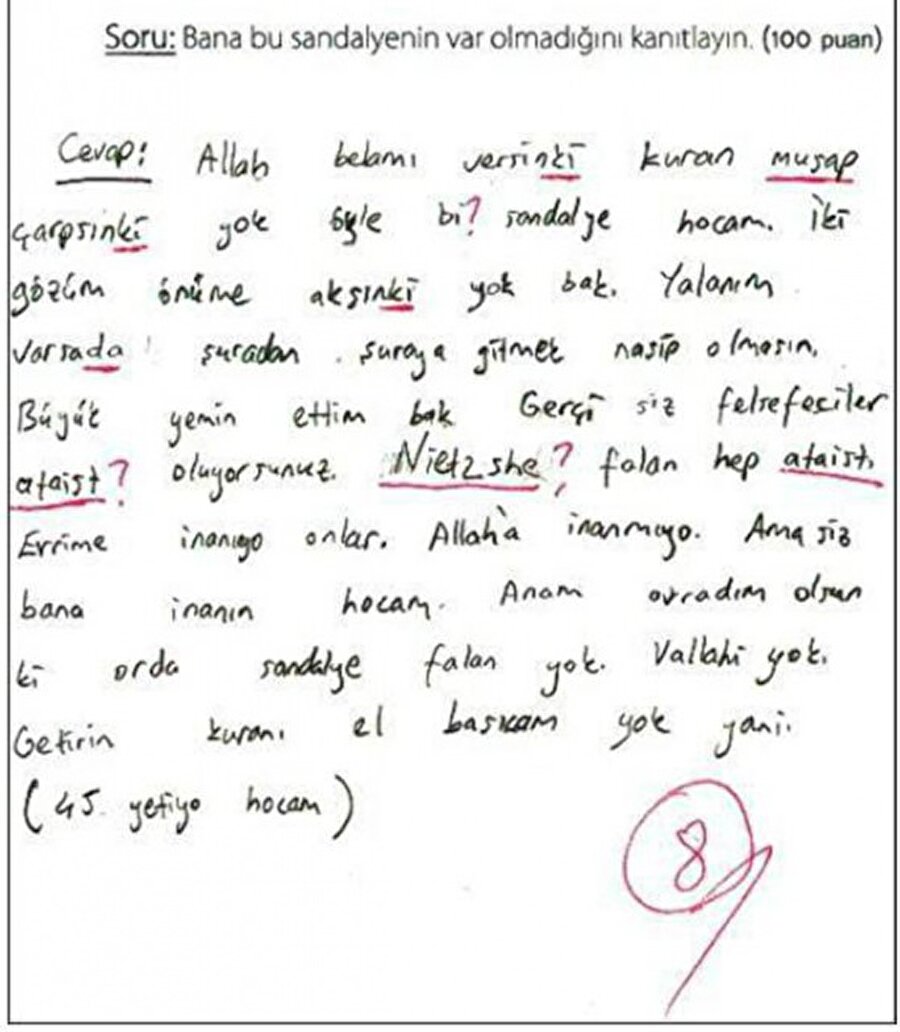 Soru: Bana bu sandalyenin var olmadığını kanıtlayın. (100 puan)
Cevap: Allah belamı versinki kuran musap
çarpsinki yok öyle bi? sandalye hocam. İki
gözüm önüme aksınki yok bak. Yalanım
varsada şuradan şuraya gitmek nasip olmasın.
Büyük yemin ettim bak Gerçi siz felsefeciler
ataist? oluyorsunuz. Nietzshe? falan hep ataist.
Evrime inanıyo onlar. Allah'a inanmıyo. Ama siz
bana inanın hocam. Anam avradım olsun
ki orda sandalye falan yok. Vallahi yok.
Getirin kuranı el basıcam yok yani.
(45 yetiyo hocam)
8